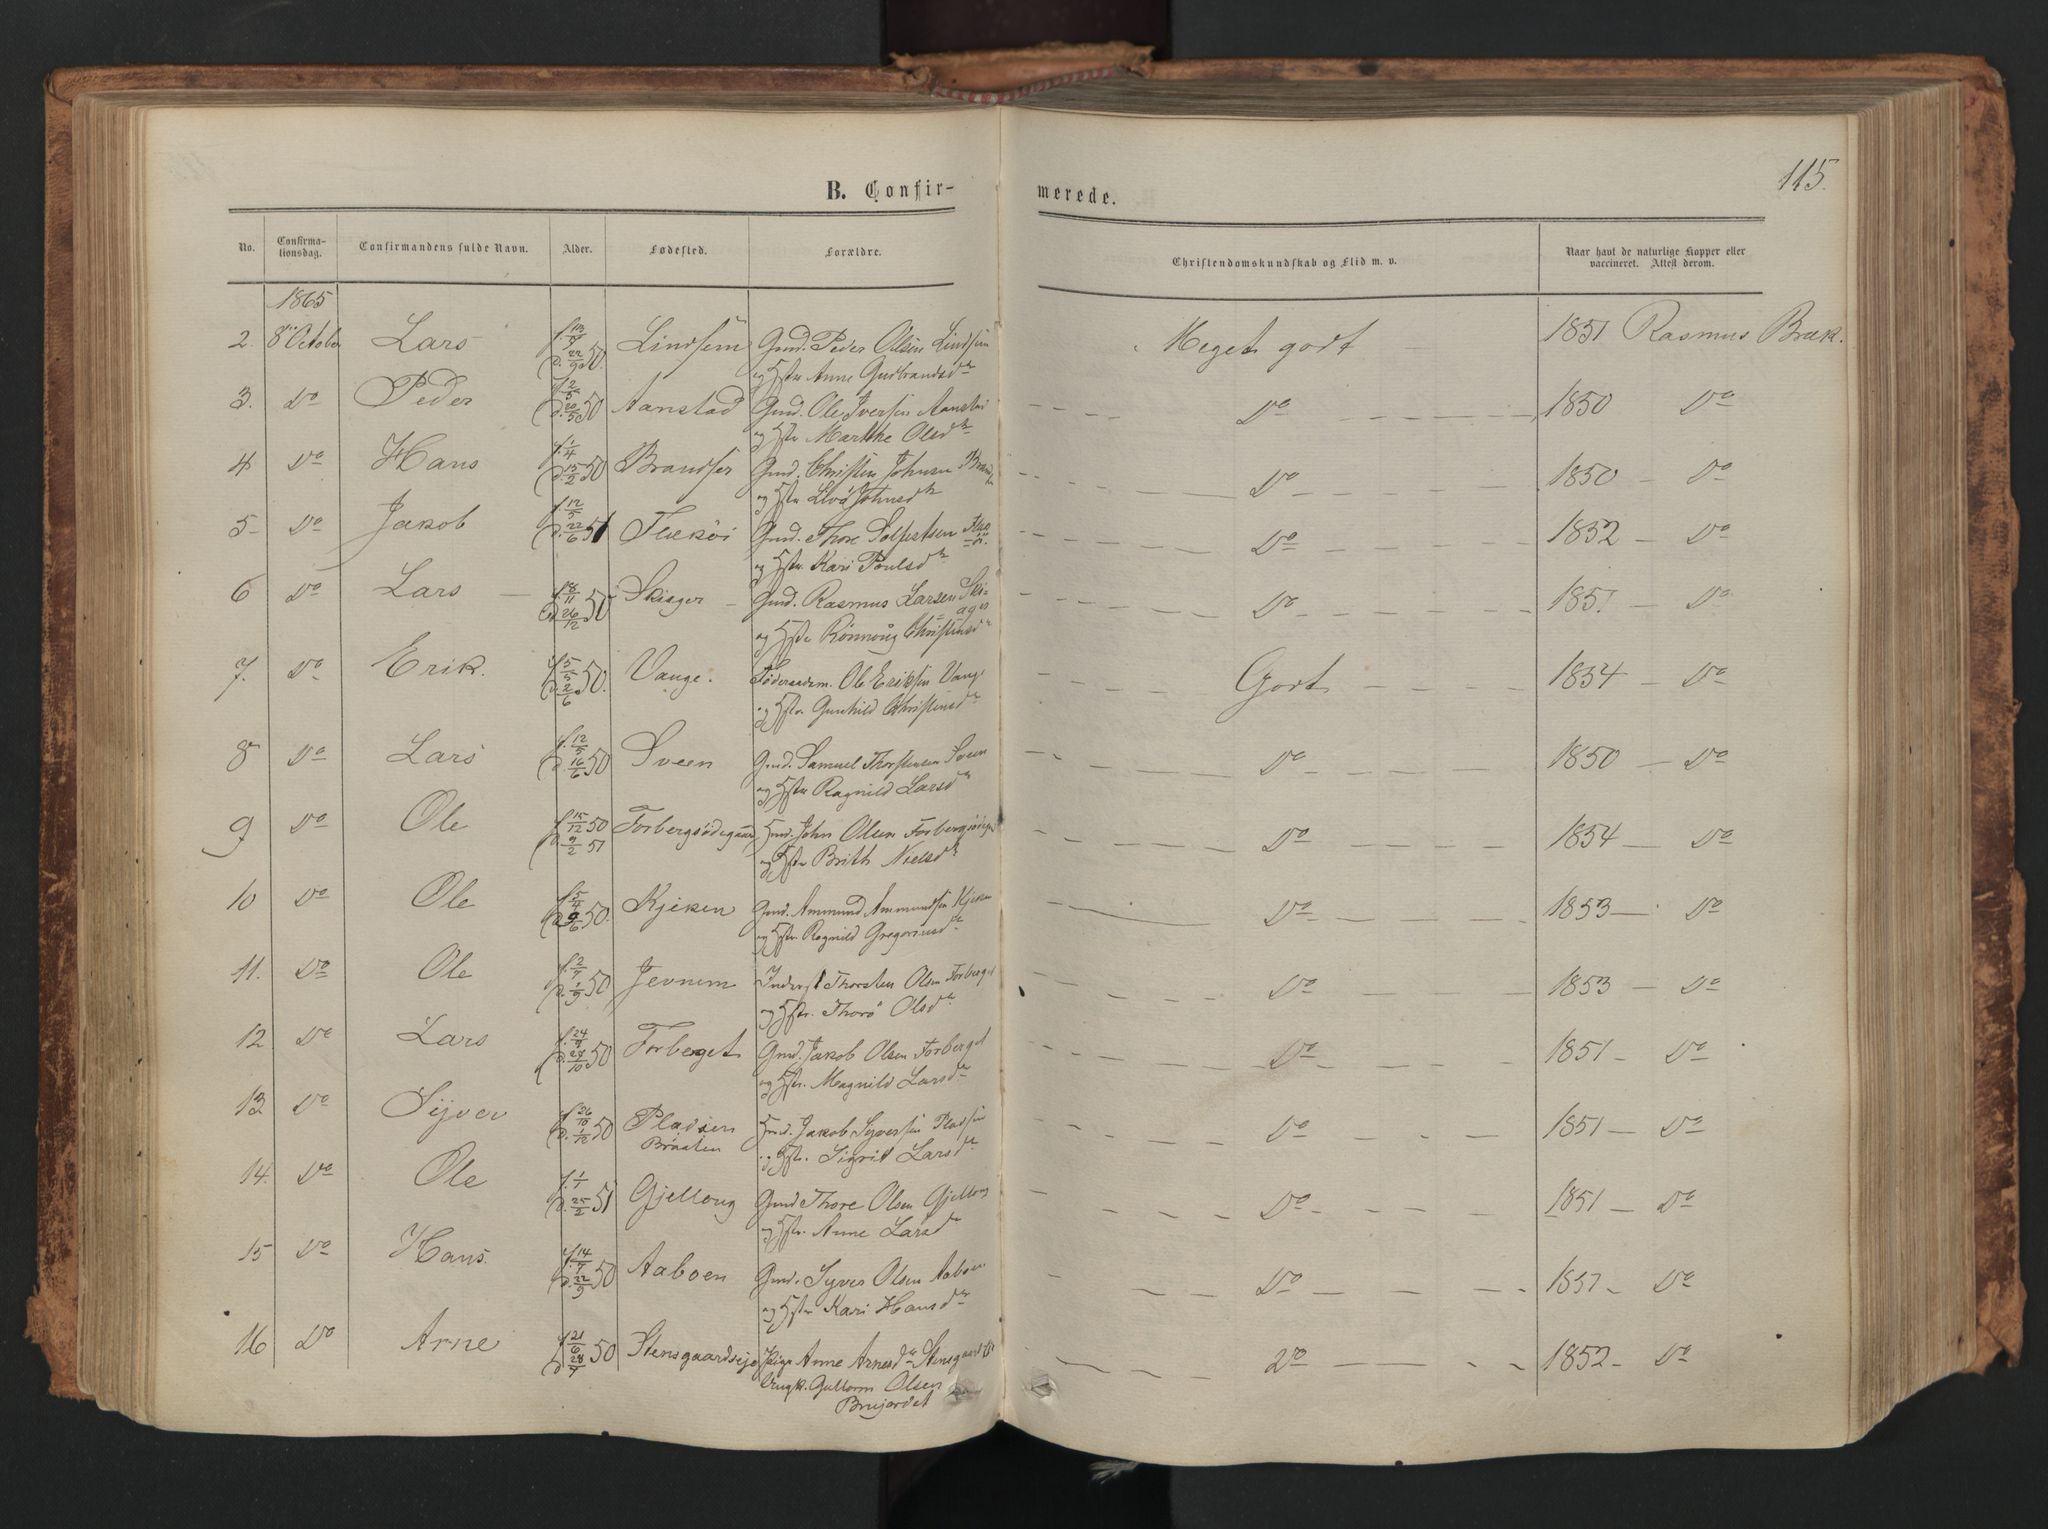 115.
B. Confir-
merede.
No.
Confirma-
tionsdag.
Confirmandens fulde Navn.
Alder.
Fødested.
Forældre.
Christendomskundskab og Flid m. v.
Naar havt de naturlige Kopper eller
vaccineret. Attest derom.
1865
2. 8de October Lars 50. Lindsem Gmd. Peder Olsen Lindsem Meget godt 1851 Rasmus Bræk.
og Hstr Anne Gudbrandsdr
3. Do Peder f. 2/5 d. 20/5 50 Aanstad Gmd. Ole Iversen Aanstad Do 1850 Do
og Hstr Marthe Olsdr
4 Do Hans f. 1/4 50 Brandser Gmd. Christen Johnsen Do 1850 Do
og Hstr Johnsdr
5 Do Jakob f. 12/5 d. 22/6 51 Flækøi Gmd. Thore Do 1852 Do
og Hstr Kari Poulsdr
6 Do Lars f. 8/11 d. 26/12 50 Skiager Gmd. Rasmus Larsen Ski-
ager Do 1851 Do
og Hstr Rønnoug Christensdr
7. Do Erik. f. 5/5 d. 2/6 50. Vange. Føderaadsm. Ole Eriksen Vange Godt 1854 Do
og Hstr Gunhild Christensdr
8 Do Lars f. 12/5 d. 16/6 50 Sveen Gmd. Samuel Thorstensen Sveen Do 1850 Do
og Hstr Ragnild Larsdr
9 Do Ole f. 15/12 50 d. 9/2 51 Forbergsødegaard Hmd. John Olsen Do 1854 Do
og Hstr Brith Nielsdr
10 Do Ole f. 5/4 50. Kjeken Gmd. Ammund Ammundsen Kjeken Do 1853 Do
og Hstr. Ragnild Gregoriusdr
11. Do Ole f. 2/7 d. 1/9 50 Jevnem Inderst Thorsten Olsen Forberget Do 1853 Do
og Hstr. Thorø Olsdr
12 Do Lars f. 24/9 d. 27/10 50 Forberget Gmd. Jakob Olsen Forberget Do 1851 Do
og Hstr. Magnild Larsdr
13 Do Sijver f. 26/10 d. 1/12 50 Pladsen Hmd. Jakob Syversen Pladsen Do 1851 Do
Braaten
og Hstr. Sigrid Larsdr
14. Do Ole f. 1/1 d. 25/2 51 Gjelloug Gmd Thore Olsen Gjelloug Do 1851 Do
og Hstr. Anne Larsdr
15 Do Hans f. 14/7 d. 22/9 50 Aaboen Gmd. Syver Olsen Aaboen Do 1851 Do
og Hstr Kari Hansdr
16 Do Arne f. 21/6 d. 28/7 50 Stensgaardseje Pige Anne Arnesdr Do 1852 Do
Ungk. Guttorm Olsen